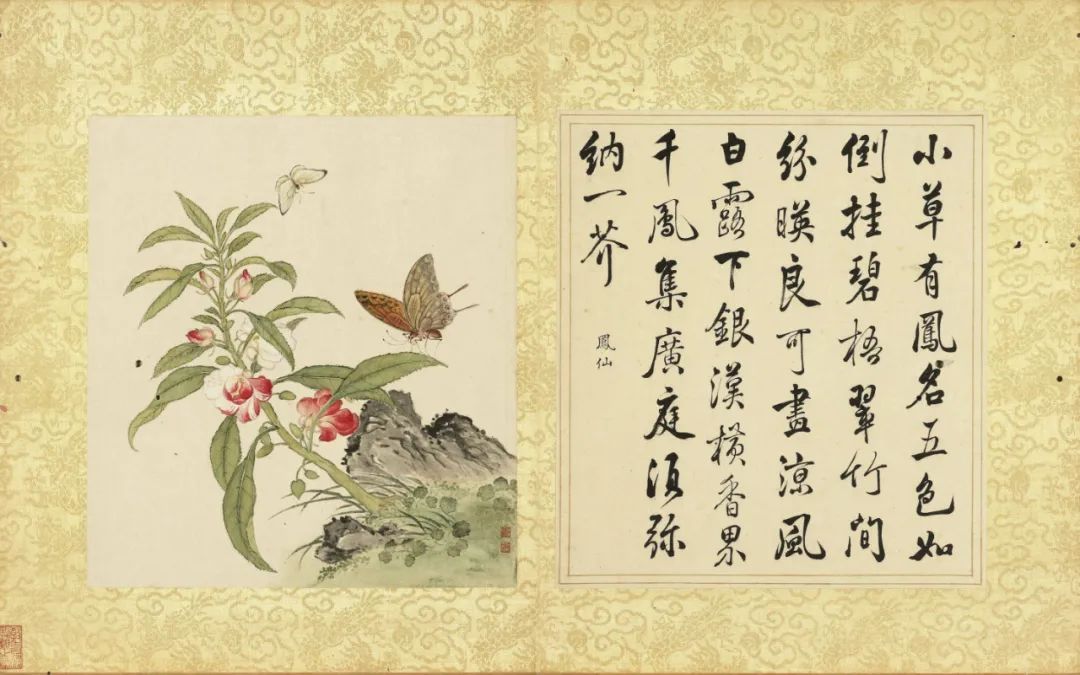 小草有鳳名五色如
倒挂碧梧翠竹間
紛暎良可畫涼風
白露下銀漢横香界
千鳳集廣庭須弥
納一芥
鳳仙